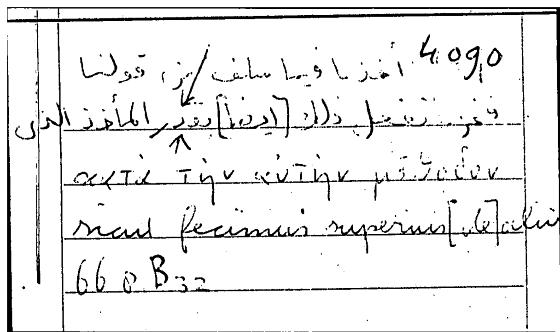 4090 أخذنا فيما سلف من قولنا
فنحن نفعل ذلك [ايضا] بقدر المأخذ الذى
κατὰ τὴν αὐτὴν μέθοδον
sicut fecimus superius [de] aliis
66 8 B 32